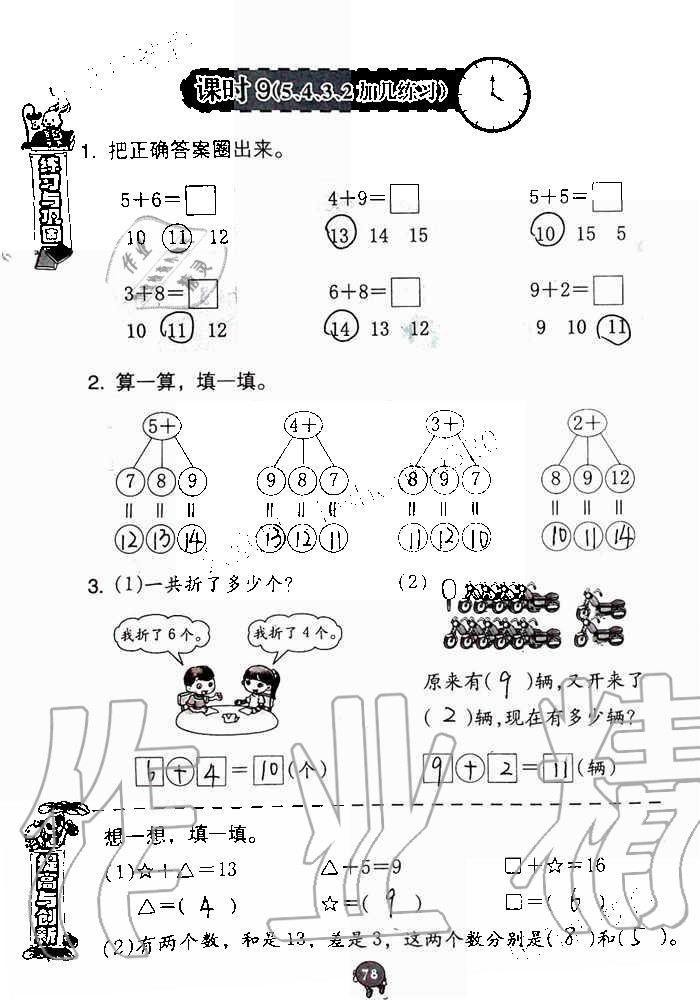 课时9(5、4、3、2加几练习)
练习与巩固
1. 把正确答案圈出来。
5+6=□ 4+9=□ 5+5=□
10 11 12 13 14 15 10 15 5
3+8=□ 6+8=□ 9+2=□
10 11 12 14 13 12 9 10 11
2. 算一算，填一填。
5+ 4+ 3+ 2+
7 8 9 9 8 7 8 9 7 8 9 12
= = = = = = = = = = = =
12 13 14 13 12 11 11 12 10 10 11 14
3. (1)一共折了多少个? (2)
我折了6个。 我折了4个。
原来有(9)辆,又开来了
(2)辆,现在有多少辆?
6+4=10(个) 9+2=11(辆)
提高与创新
想一想，填一填。
(1)☆+△=13 △+5=9 □+☆=16
△=(4) ☆=(9) □=(6)
(2)有两个数，和是13，差是3，这两个数分别是(8)和(5)。
78
作业精